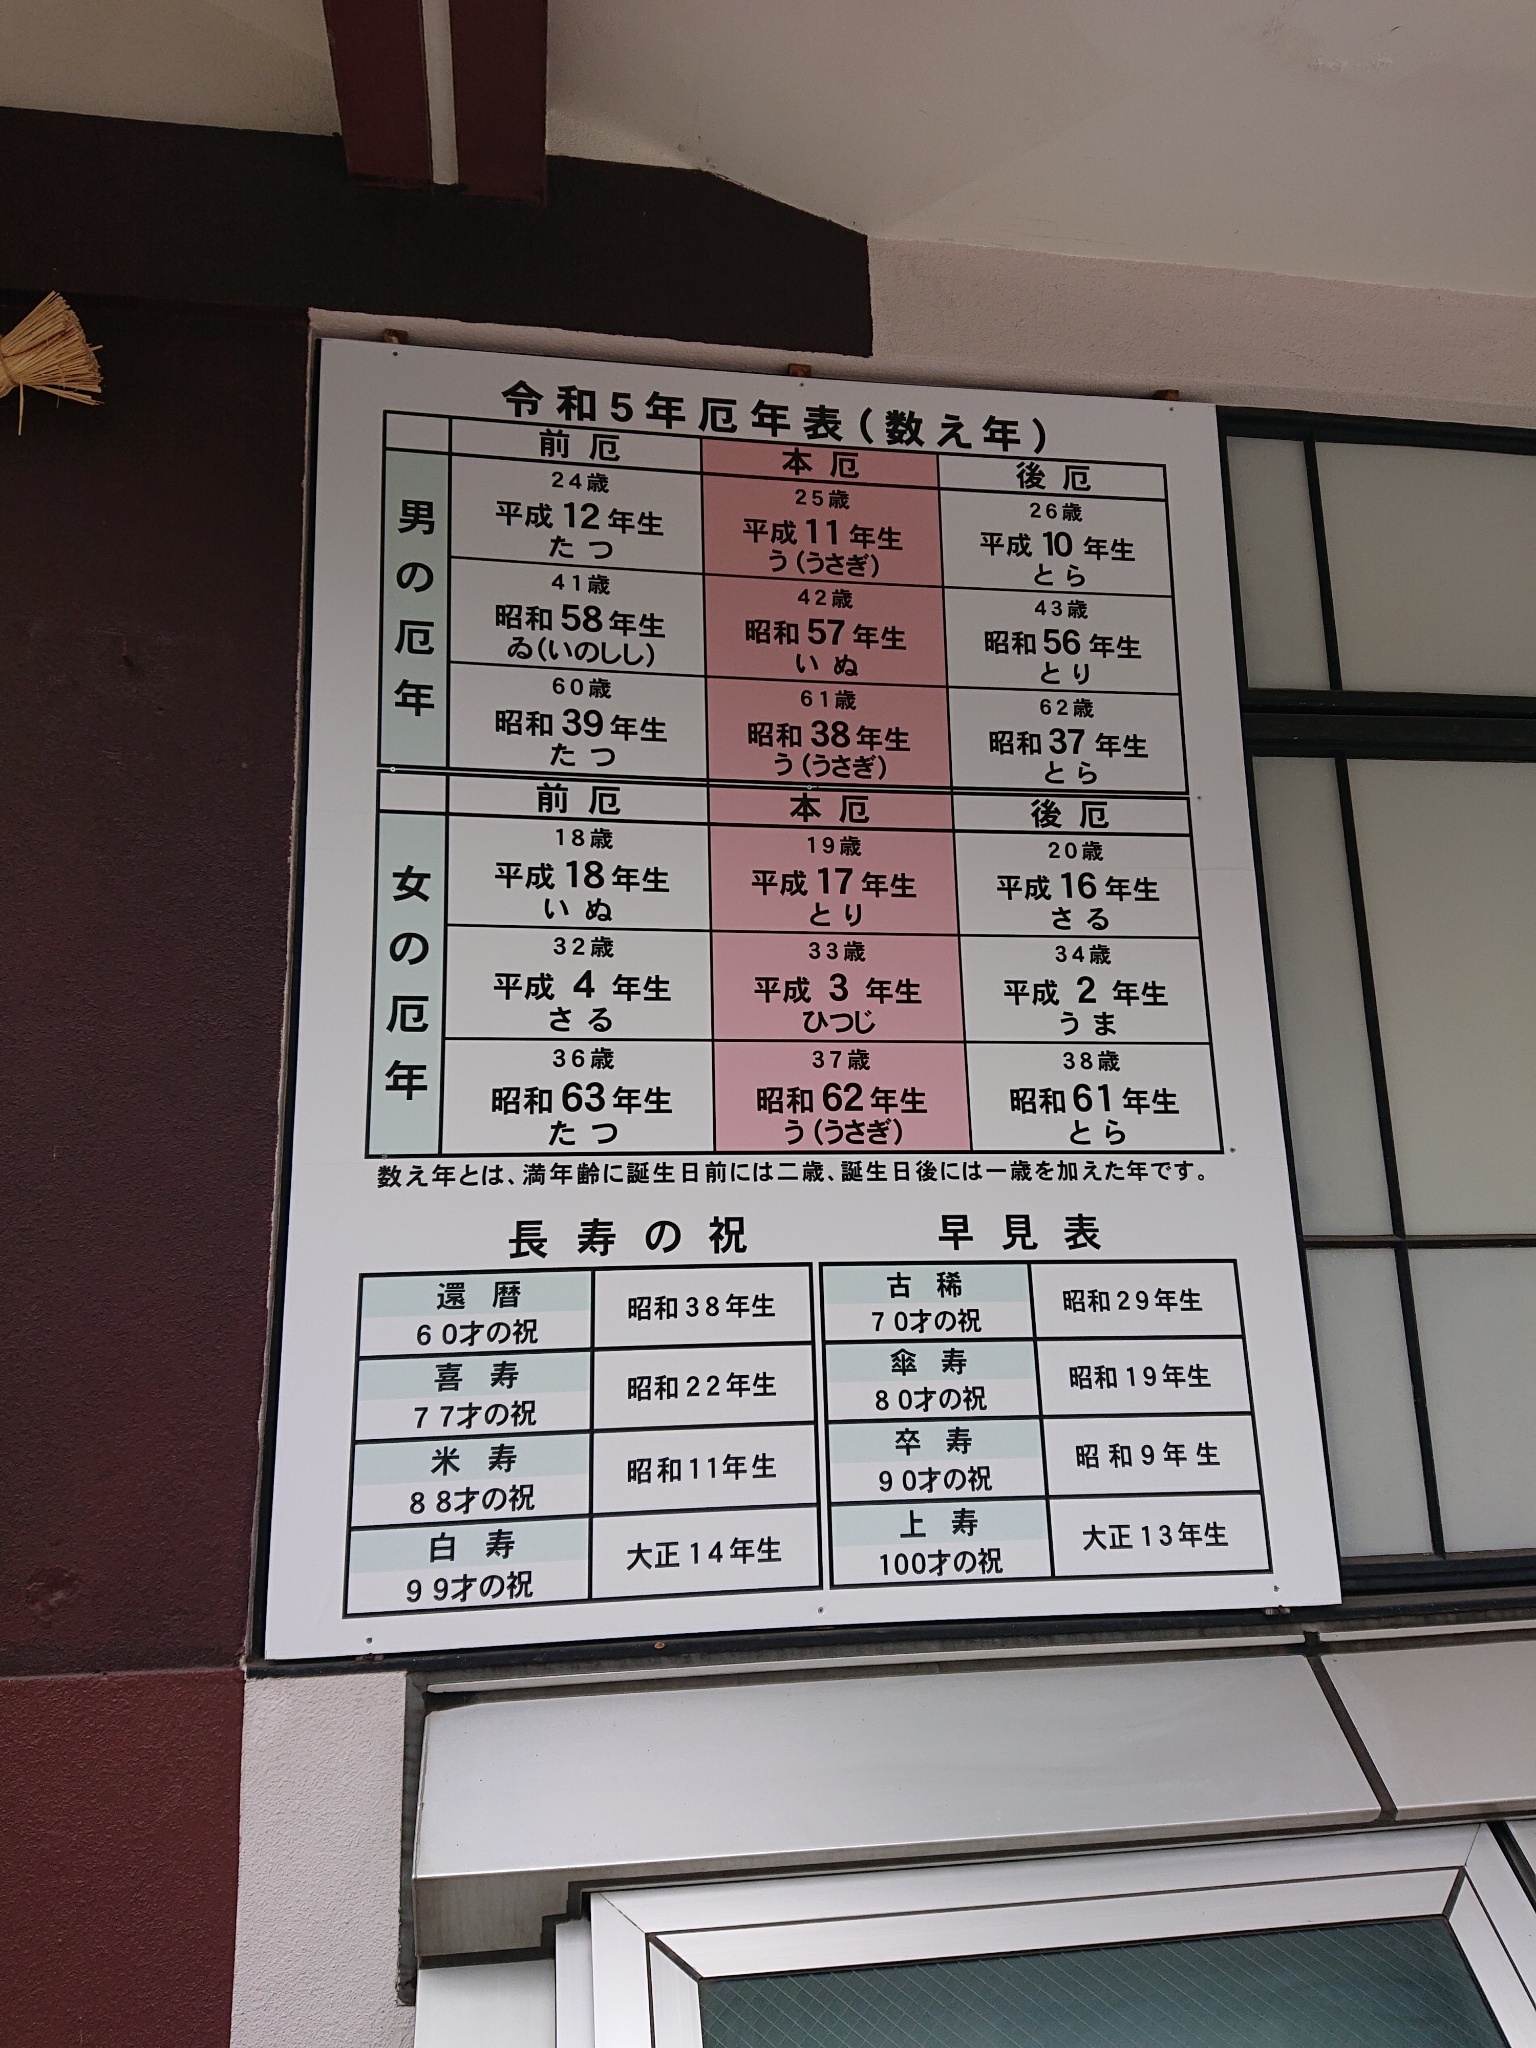 令和5年厄年表(数え年)
前厄 本厄 後厄
男の厄年
24歳 25歳 26歳
平成12年生 平成11年生 平成10年生
たつ う(うさぎ) とら
41歳 42歳 43歳
昭和58年生 昭和57年生 昭和56年生
ゐ(いのしし) いぬ とり
60歳 61歳 62歳
昭和39年生 昭和38年生 昭和37年生
たつ う(うさぎ) とら
前厄 本厄 後厄
女の厄年
18歳 19歳 20歳
平成18年生 平成17年生 平成16年生
いぬ とり さる
32歳 33歳 34歳
平成4年生 平成3年生 平成2年生
さる ひつじ うま
36歳 37歳 38歳
昭和63年生 昭和62年生 昭和61年生
たつ う(うさぎ) とら
数え年とは、満年齢に誕生日前には二歳、誕生日後には一歳を加えた年です。
長寿の祝 早見表
還暦 昭和38年生 古稀 昭和29年生
60才の祝 70才の祝
喜寿 昭和22年生 傘寿 昭和19年生
77才の祝 80才の祝
米寿 昭和11年生 卒寿 昭和9年生
88才の祝 90才の祝
白寿 大正14年生 上寿 大正13年生
99才の祝 100才の祝